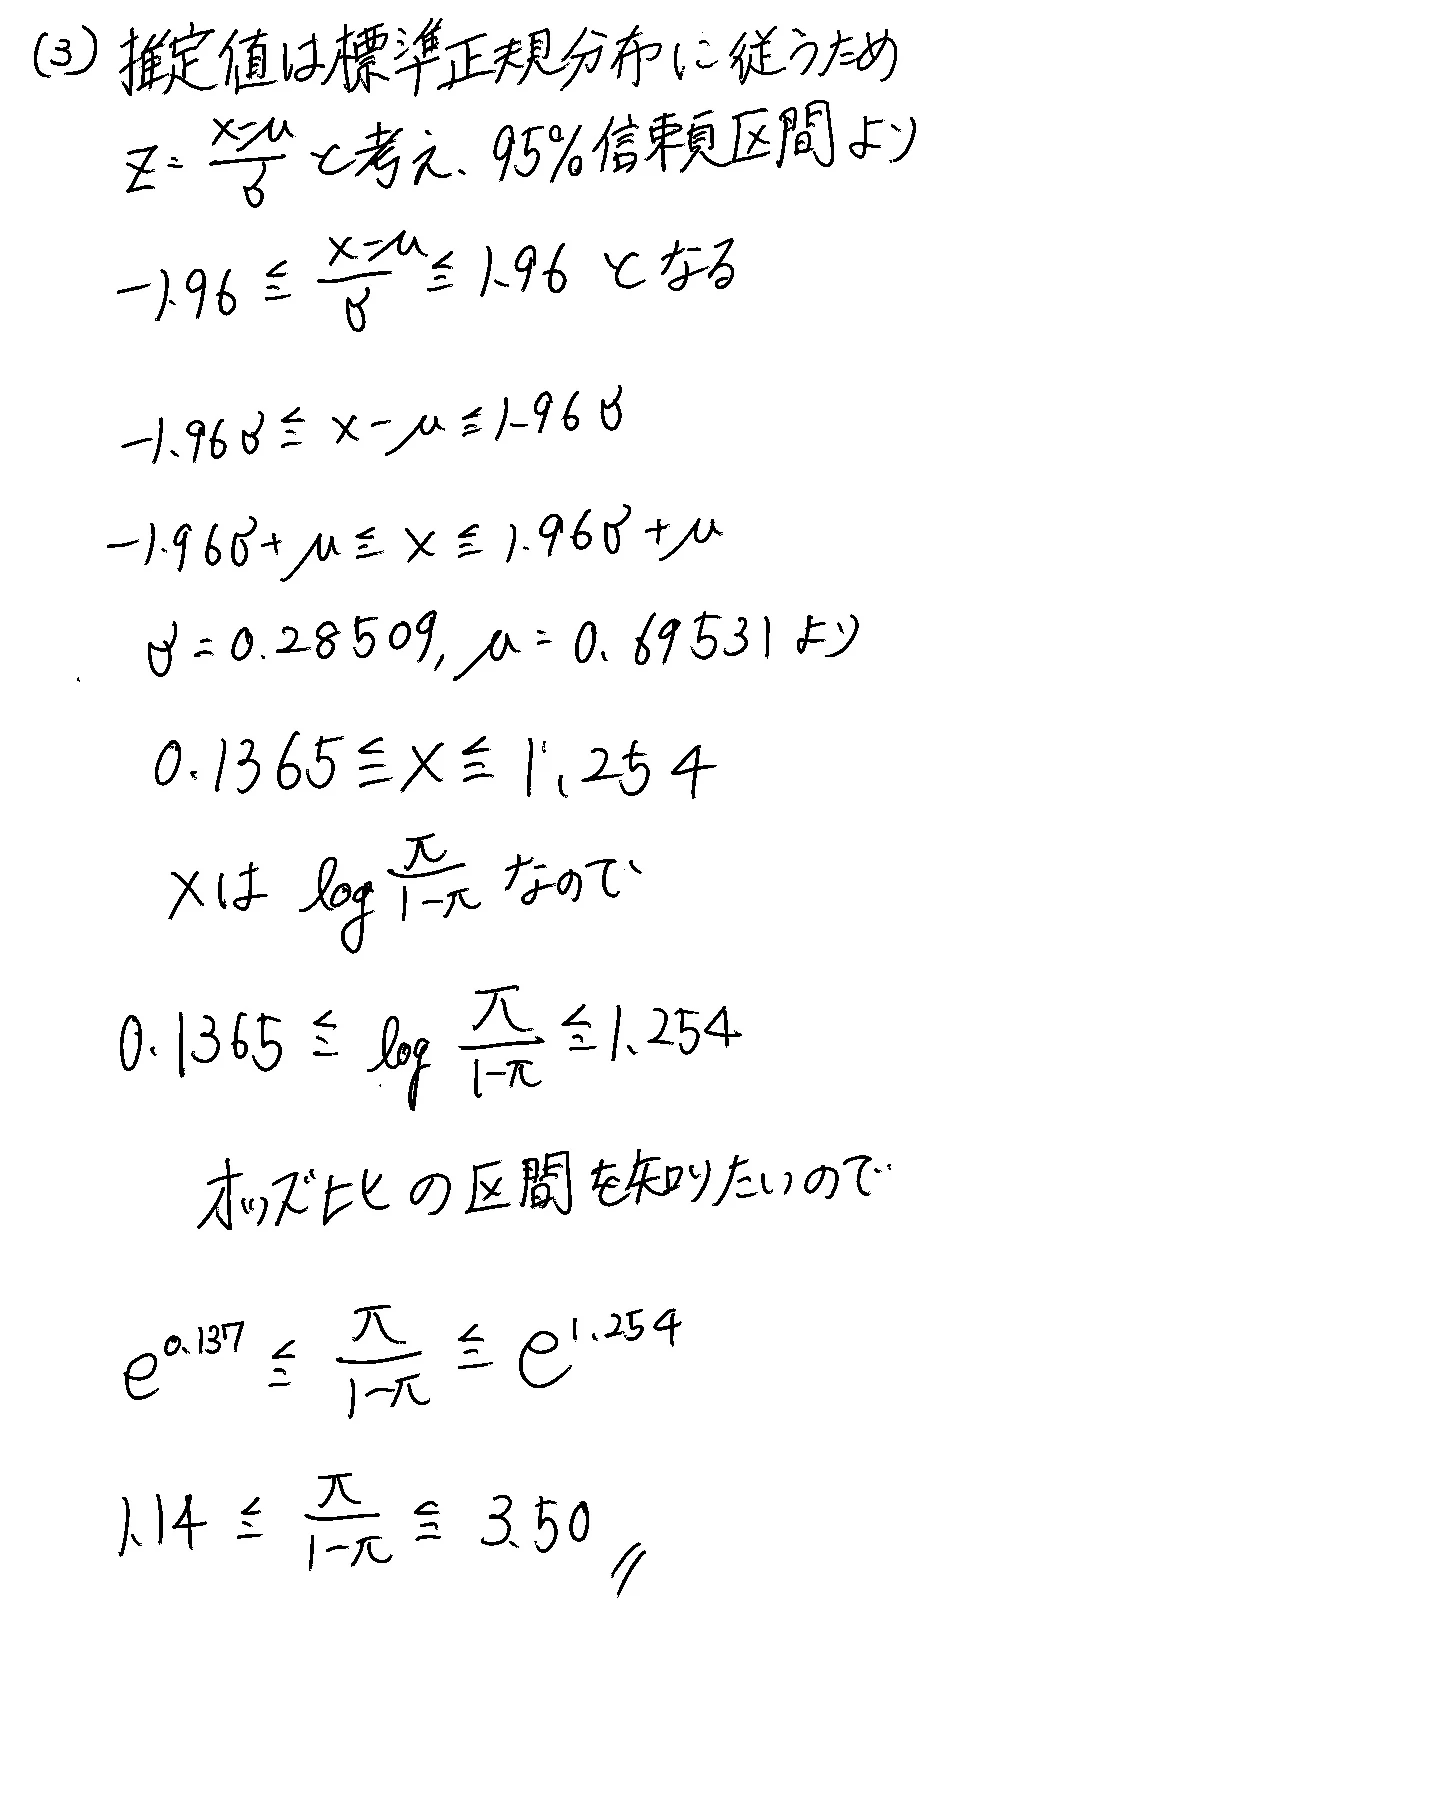 (3) 推定値は標準正規分布に従うため
z = (x-μ)/σ と考え、95%信頼区間より
-1.96 ≦ (x-μ)/σ ≦ 1.96 となる
-1.96σ ≦ x-μ ≦ 1.96σ
-1.96σ+μ ≦ x ≦ 1.96σ+μ
σ=0.28509, μ=0.69531より
0.1365 ≦ x ≦ 1.254
xは log π/(1-π) なので
0.1365 ≦ log π/(1-π) ≦ 1.254
オッズ比の区間を知りたいので
e^0.137 ≦ π/(1-π) ≦ e^1.254
1.14 ≦ π/(1-π) ≦ 3.50